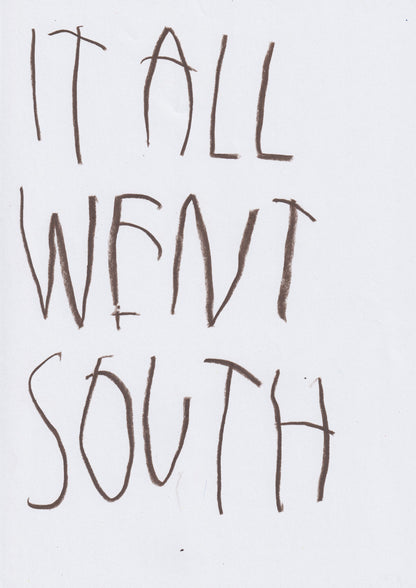 IT ALL
WENT
SOUTH